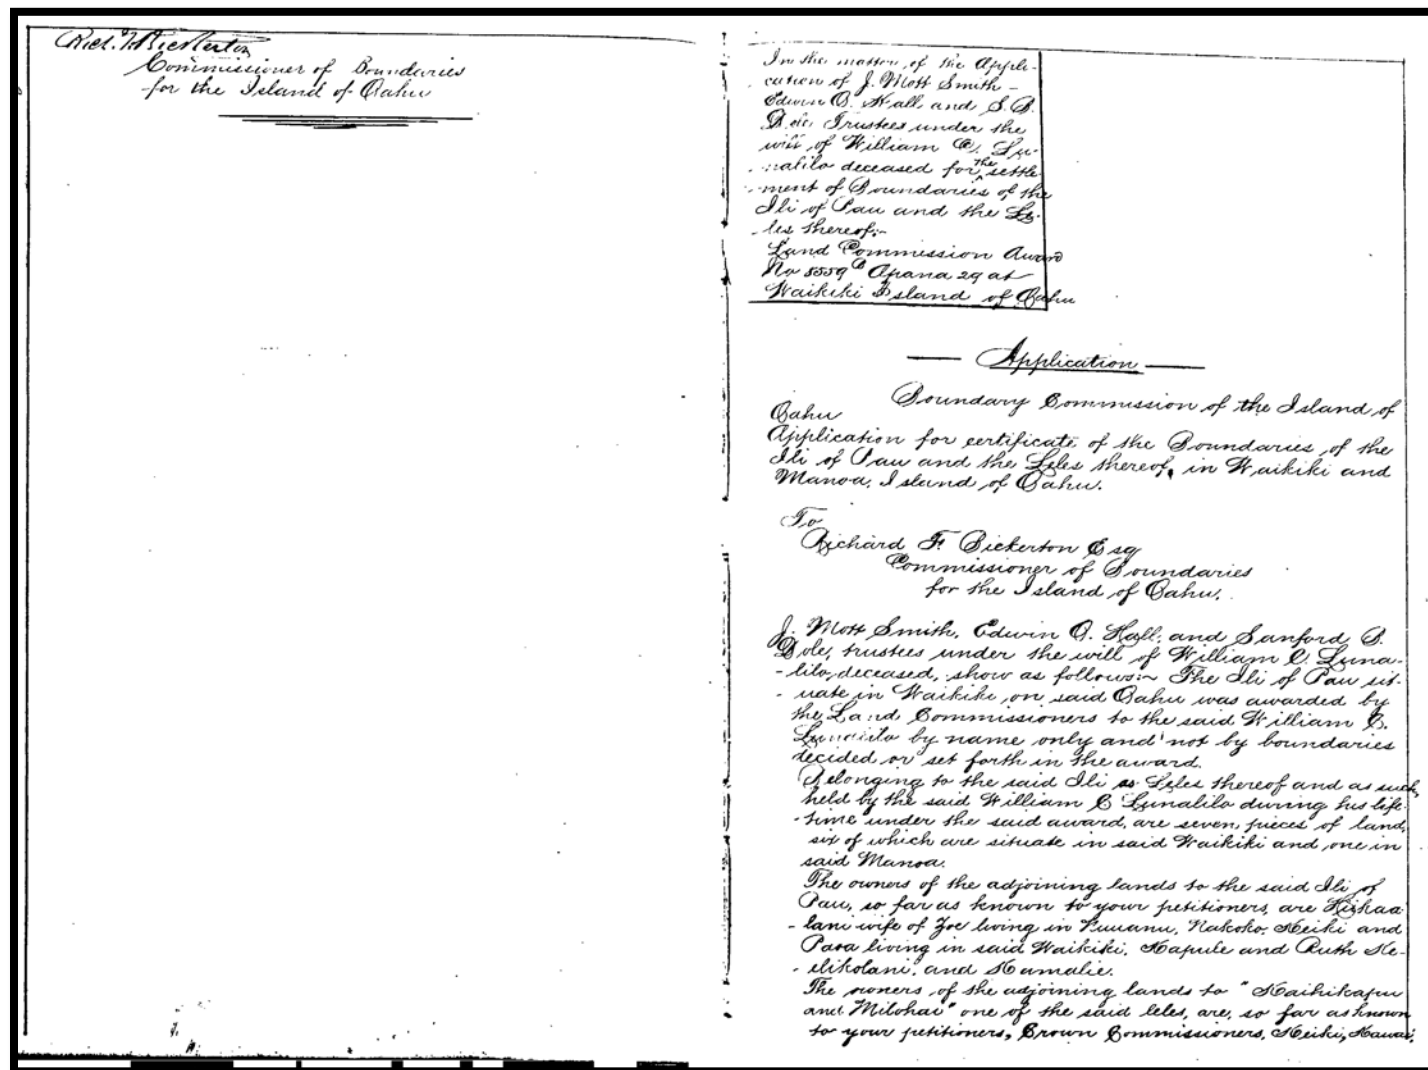 Rich. F. Bickerton
Commissioner of Boundaries
for the Island of Oahu
In the matter of the Appli-
cation of J. Mott Smith -
Edwin O. Hall and S. B.
Dole Trustees under the
will of William C. Lu-
-nalilo deceased for the settle-
-ment of Boundaries of the
Ili of Pau and the Le-
-les thereof:-
Land Commission Award
No 8559B Apana 29 at
Waikiki Island of Oahu
Application
Boundary Commission of the Island of
Oahu
Application for certificate of the Boundaries of the
Ili of Pau and the Leles thereof, in Waikiki and
Manoa, Island of Oahu.
To
Richard F. Bickerton Esq
Commissioner of Boundaries
for the Island of Oahu.
J. Mott Smith, Edwin O. Hall, and Sanford B.
Dole, trustees under the will of William C. Luna-
-lilo, deceased, show as follows:- The Ili of Pau sit-
-uate in Waikiki on said Oahu was awarded by
the Land Commissioners to the said William C.
Lunalilo by name only and not by boundaries
decided or set forth in the award.
Belonging to the said Ili as Leles thereof and as such
held by the said William C Lunalilo during his life-
-time under the said award, are seven pieces of land,
six of which are situate in said Waikiki and one in
said Manoa.
The owners of the adjoining lands to the said Ili of
Pau, so far as known to your petitioners, are
-lani wife of Zoe living in Nuuanu, Nakoko, Keiki and
Paoa living in said Waikiki, Kapule and Ruth Ke-
-elikolani, and Kamalie.
The owners of the adjoining lands to "Kaihikapu
and Milohai" one of the said leles, are, so far as known
to your petitioners, Crown Commissioners, Keiki, Kawai,